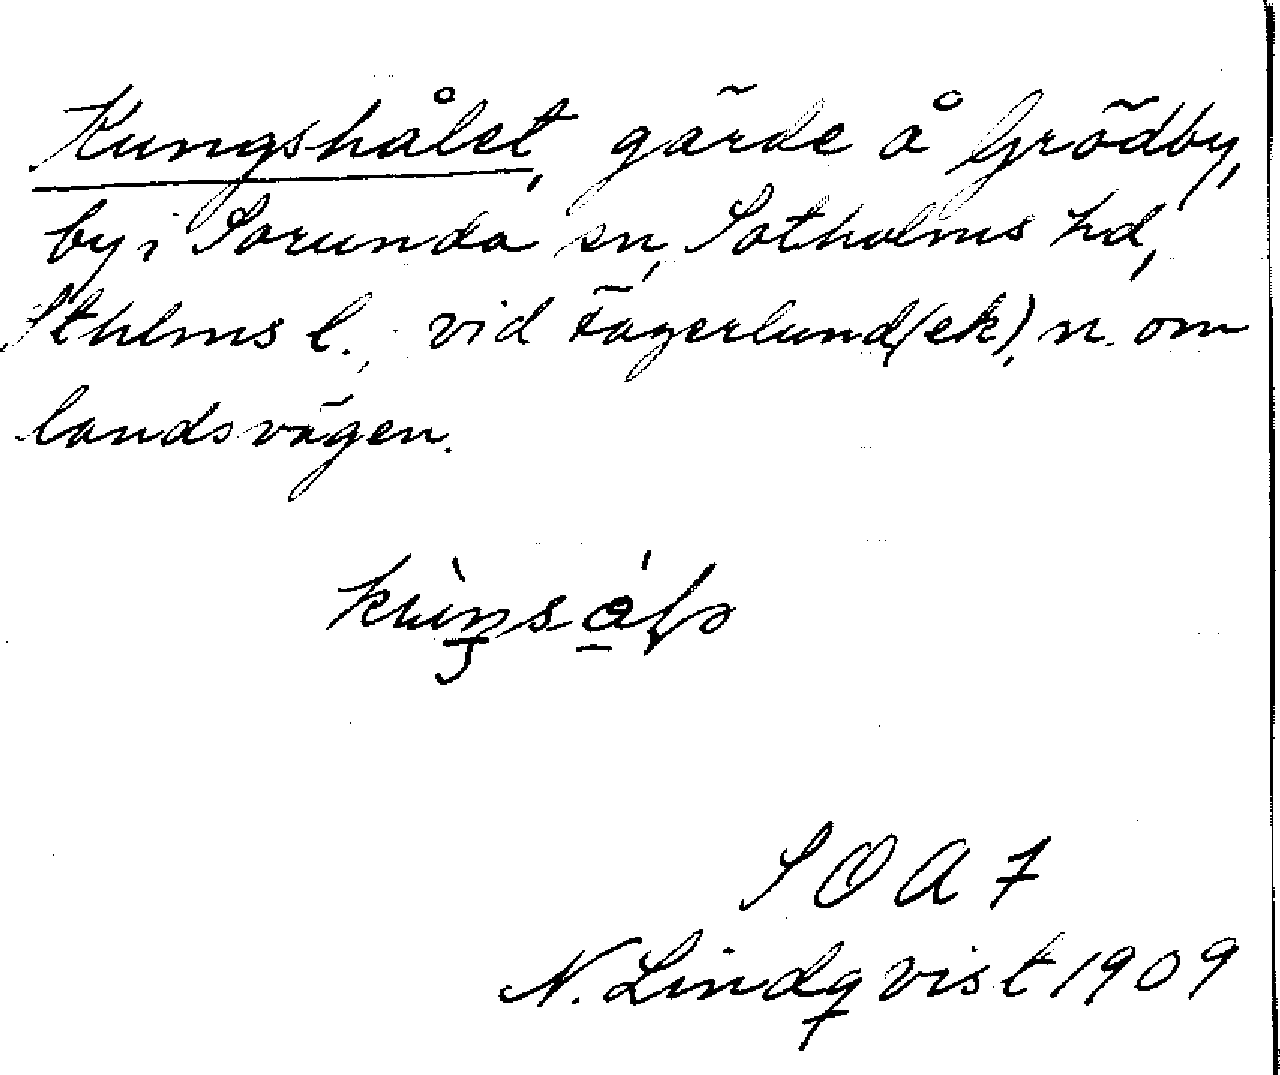 Kungshålet, gärde å Grödby,
by i Sorunda sn, Sotholms hd,
Sthlms l., vid Fagerlund (ek), n. om
landsvägen.
SOA 7
N. Lindqvist 1909